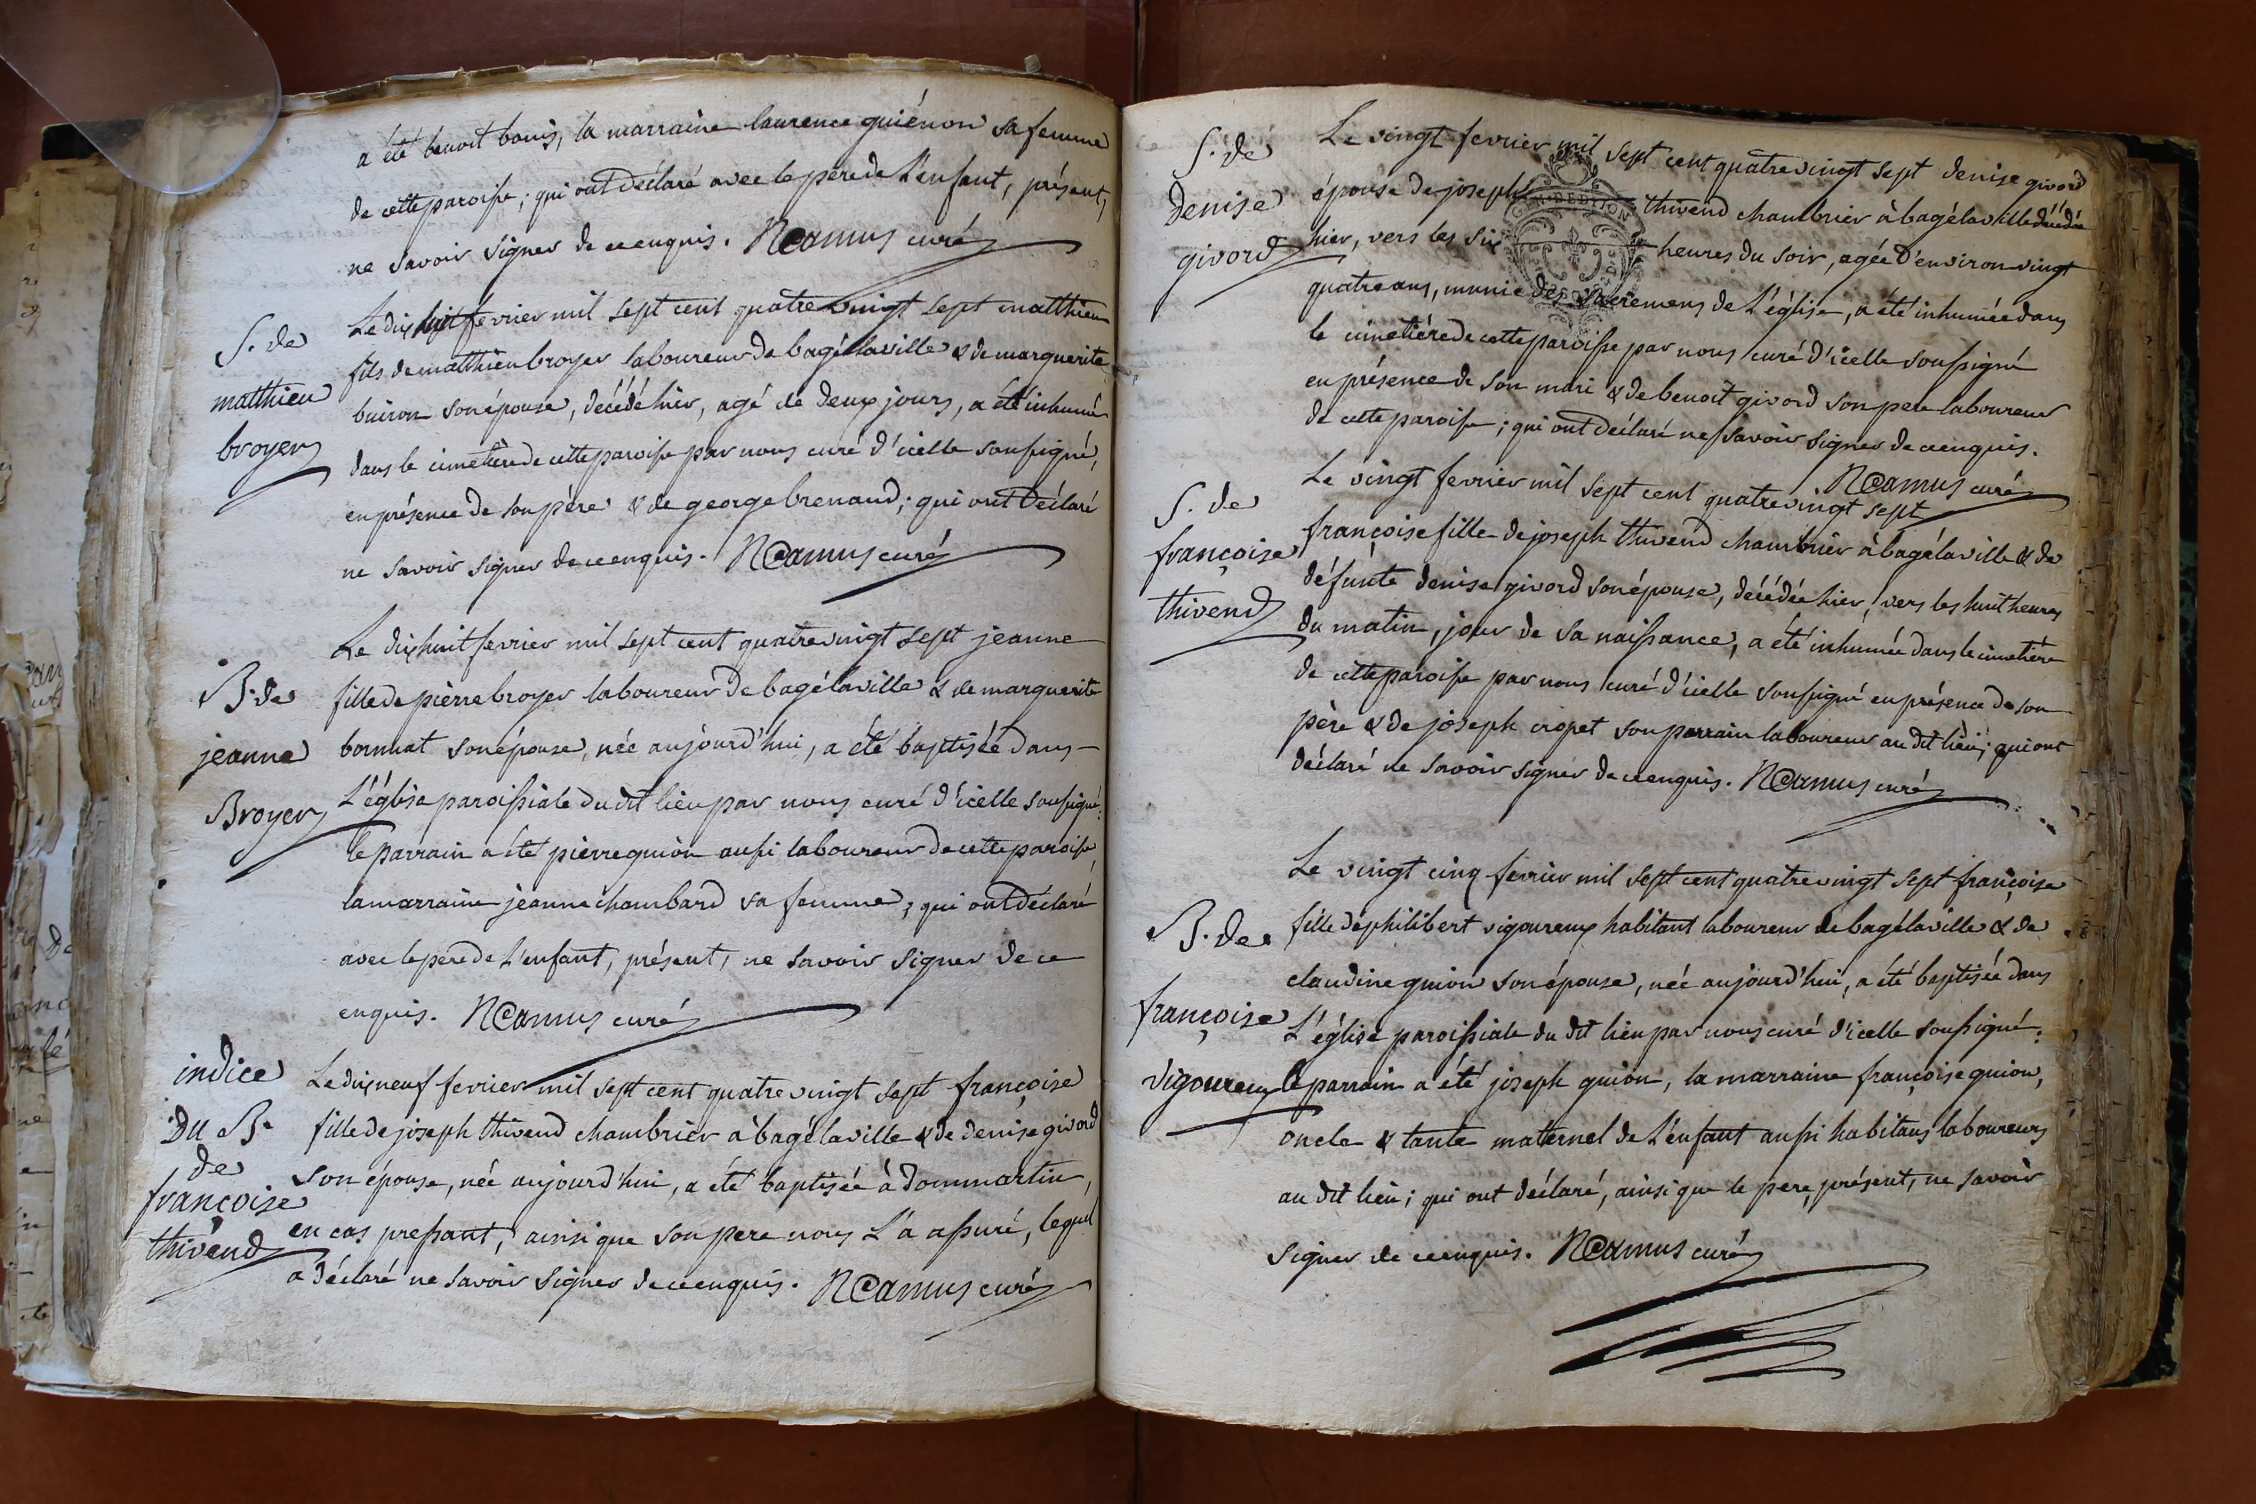 a été benoit bouis, la marraine laurence guiénon sa femme
de cette paroisse; qui ont déclaré avec le pere de L'enfant, présent,
ne savoir signer de ce enquis. NCamus curé
S. de
matthieu
broyer
Le dix huit fevrier mil sept cent quatre vingt sept matthieu
fils de matthieu broyer laboureur de bagélaville & de marguerite
buiron son épouse, décédé hier, agé de deux jours, a été inhumé
dans le cimetière de cette paroisse par nous curé d'icelle soussigné,
en présence de son père & de george brenaud; qui ont déclaré
ne savoir signer de ce enquis. NCamus curé
B. de
jeanne
Broyer
Le dix huit fevrier mil sept cent quatre vingt sept jeanne
fille de pièrre broyer laboureur de bagélaville & de marguerite
bonnat son épouse, née aujourd'hui, a été baptisée dans
L'église paroissiale du dit lieu par nous curé d'icelle soussigné:
le parrain a été pièrre guion aussi laboureur de cette paroisse,
la marraine jeanne chambard sa femme; qui ont déclaré
avec le père de L'enfant, présent, ne savoir signer de ce
enquis. NCamus curé
indice
du B.
de
françoise
thivend
Le dix neuf fevrier mil sept cent quatre vingt sept françoise
fille de joseph thivend chambrier à bagélaville & de denise givord
son épouse, née aujourd'hui, a été baptisée à dommartin,
en cas pressant, ainsi que son pere nous L'a assuré, lequel
a déclaré ne savoir signer de ce enquis. NCamus curé
S. de
denise
givord
Le vingt fevrier mil sept cent quatre vingt sept denise givord
épouse de joseph thivend chambrier à bagélaville décédée
hier, vers les six heures du soir, agée d'environ vingt
quatre ans, munie des sacremens de L'église, a été inhumée dans
le cimetière de cette paroisse par nous curé d'icelle soussigné
en présence de son mari & de benoit givord son pere laboureur
de cette paroisse; qui ont déclaré ne savoir signer de ce enquis.
NCamus curé
S. de
françoise
thivend
Le vingt fevrier mil sept cent quatre vingt sept
françoise fille de joseph thivend chambrier à bagélaville & de
défunte denise givord son épouse, décédée hier, vers les huit heures
du matin, jour de sa naissance, a été inhumée dans le cimetière
de cette paroisse par nous curé d'icelle soussigné en présence de son
père & de joseph cropet son parrain laboureur au dit lieu; qui ont
déclaré ne savoir signer de ce enquis. NCamus curé
B. de
françoise
vigoureux
Le vingt cinq fevrier mil sept cent quatre vingt sept françoise
fille de philibert vigoureux habitant laboureur de bagélaville & de
claudine guion son épouse, née aujourd'hui, a été baptisée dans
L'église paroissiale du dit lieu par nous curé d'icelle soussigné:
le parrain a été joseph guion, la marraine françoise guion,
oncle & tante maternel de L'enfant aussi habitans laboureurs
au dit lieu; qui ont déclaré, ainsi que le pere, présent, ne savoir
signer de ce enquis. NCamus curé